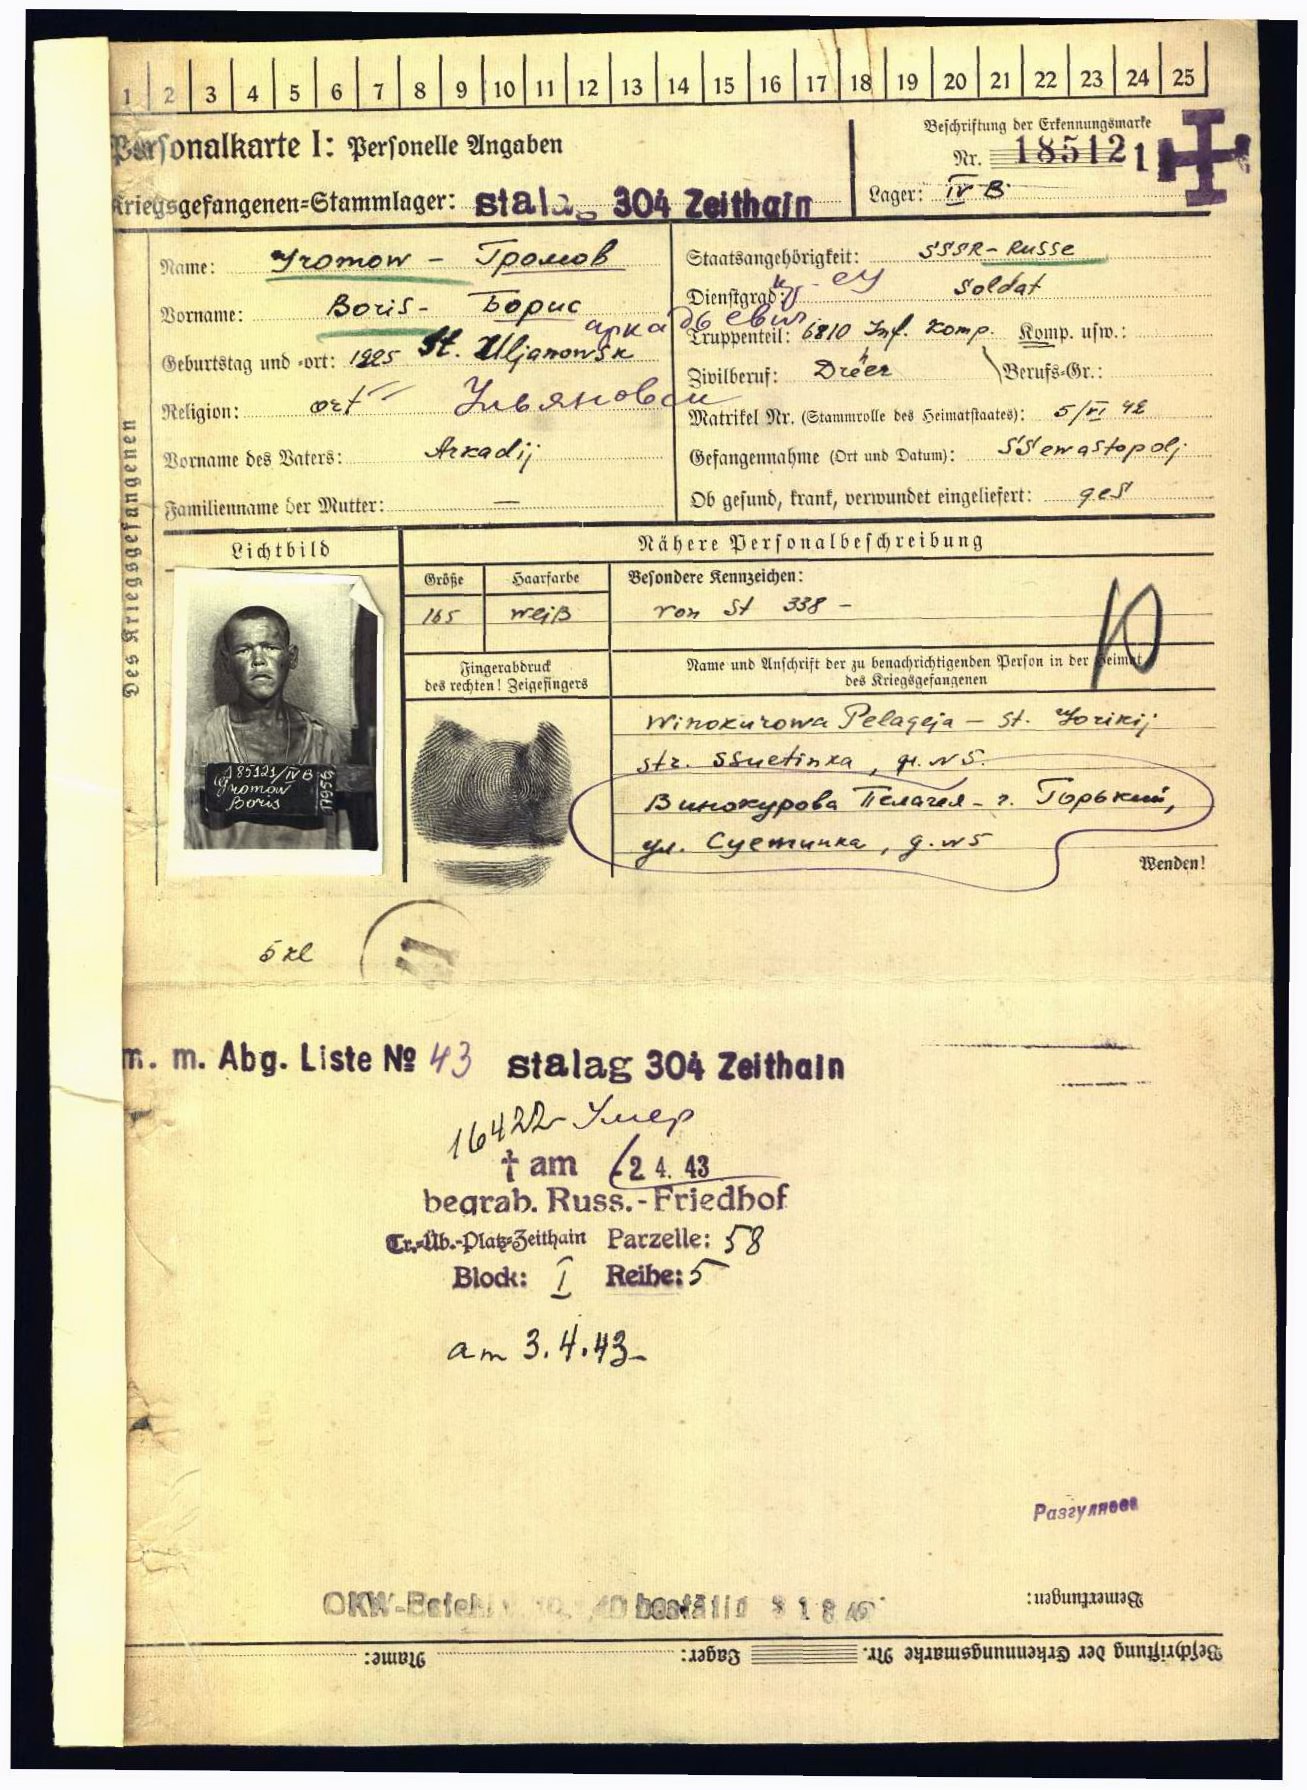 1 2 3 4 5 6 7 8 9 10 11 12 13 14 15 16 17 18 19 20 21 22 23 24 25
Personalkarte I: Personelle Angaben
Kriegsgefangenen=Stammlager: Stalag 304 Zeithain
Beschriftung der Erkennungsmarke
Nr. 185121
Lager: IV B
Des Kriegsgefangenen
Name: Gromow - Громов
Vorname: Boris - Борис
аркадьевич
Geburtstag und =ort: 1925 St. Uljanowsk
Religion: ort
Vorname des Vaters: Arkadij
Familienname der Mutter: —
Staatsangehörigkeit: SSSR - Russe
Dienstgrad: Soldat
Truppenteil: 6810 Inf. Komp. Komp. usw.:
Zivilberuf: Dreer Berufs=Gr.:
Matrikel Nr. (Stammrolle des Heimatstaates): 5/VI 42
Gefangennahme (Ort und Datum): SSewastopolj
Ob gesund, krank, verwundet eingeliefert: ges
Lichtbild
185121/IV B
Gromow
Boris
Nähere Personalbeschreibung
Größe Haarfarbe Besondere Kennzeichen:
165 weiß von St 338 -
10
Fingerabdruck
des rechten! Zeigefingers
Name und Anschrift der zu benachrichtigenden Person in der Heimat
des Kriegsgefangenen
Winokurowa Pelageja - St. Gorikij
str. SSuetinka, д. N5.
Винокурова Пелагея - г. Горький,
ул. Суетинка, д. N5
Wenden!
5 kl
m. m. Abg. Liste № 43 Stalag 304 Zeithain
16422 Умер
† am 2. 4. 43
begrab. Russ.-Friedhof
Tr.=Üb.=Platz=Zeithain Parzelle: 58
Block: I Reihe: 5
am 3.4.43
Разгуляева
Bemerkungen:
OKW-Befehl
Beschriftung der Erkennungsmarke Nr. Lager: Name: